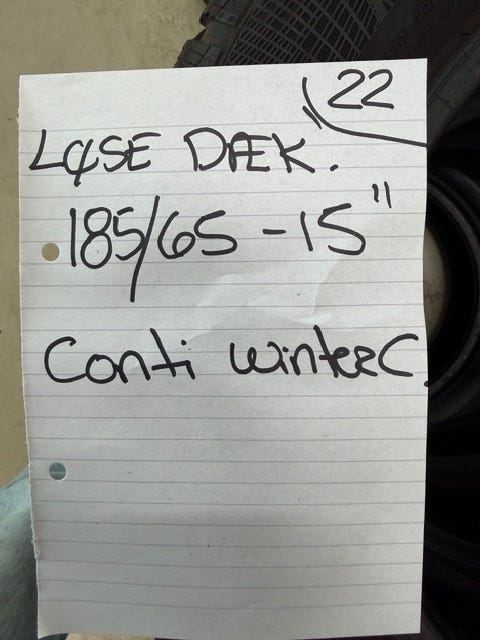 22
LØSE DÆK.
185/65-15"
Conti WinterC.